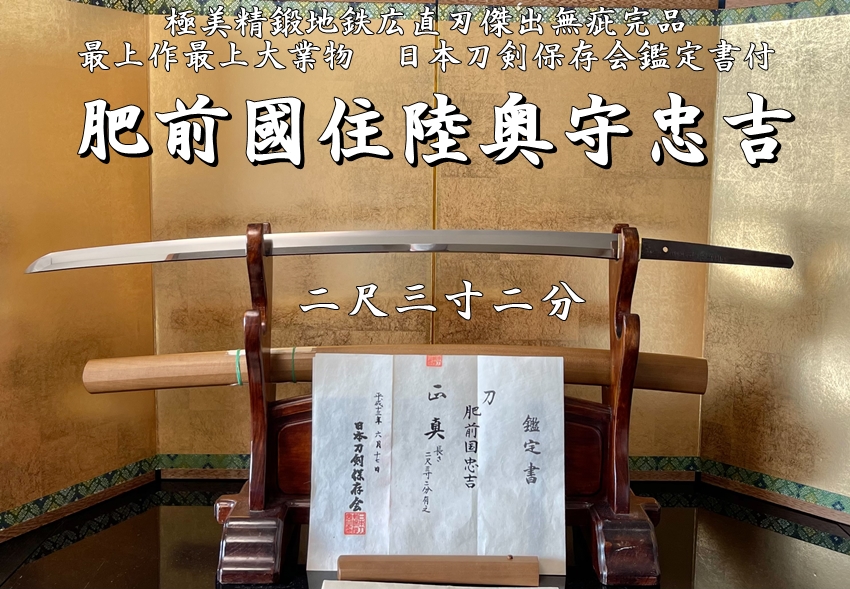 極美精鍛地鉄広直刃傑出無疵完品
最上作最上大業物　日本刀剣保存会鑑定書付
肥前國住陸奥守忠吉
二尺三寸二分
鑑定書
刀
肥前国忠吉
長さ
二尺三寸二分有之
正真
平成十三年六月十七日
日本刀剣保存会